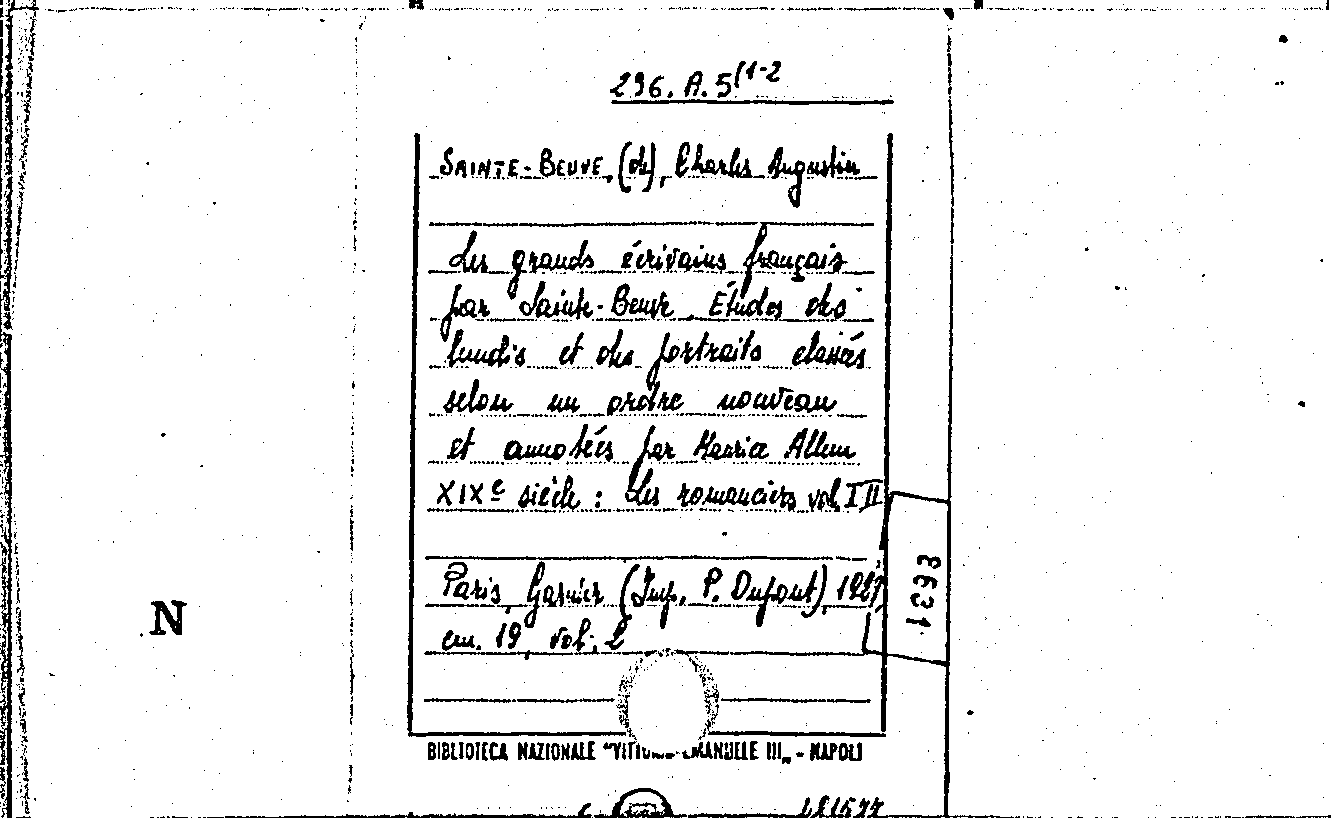 296. A. 5(1-2
SAINTE-BEUVE, (de), Charles Augustin
Les grands écrivains français
par Sainte-Beuve. Études des
lundis et des portraits classés
selon un ordre nouveau
et annotés par Maurice Allem
XIXe siècle: Les romanciers vol. I II
N
8631
Paris, Garnier (Imp. P. Dupont), 1927,
cm. 19, vol. 2
BIBLIOTECA NAZIONALE "VITTORIO EMANUELE III„ - NAPOLI